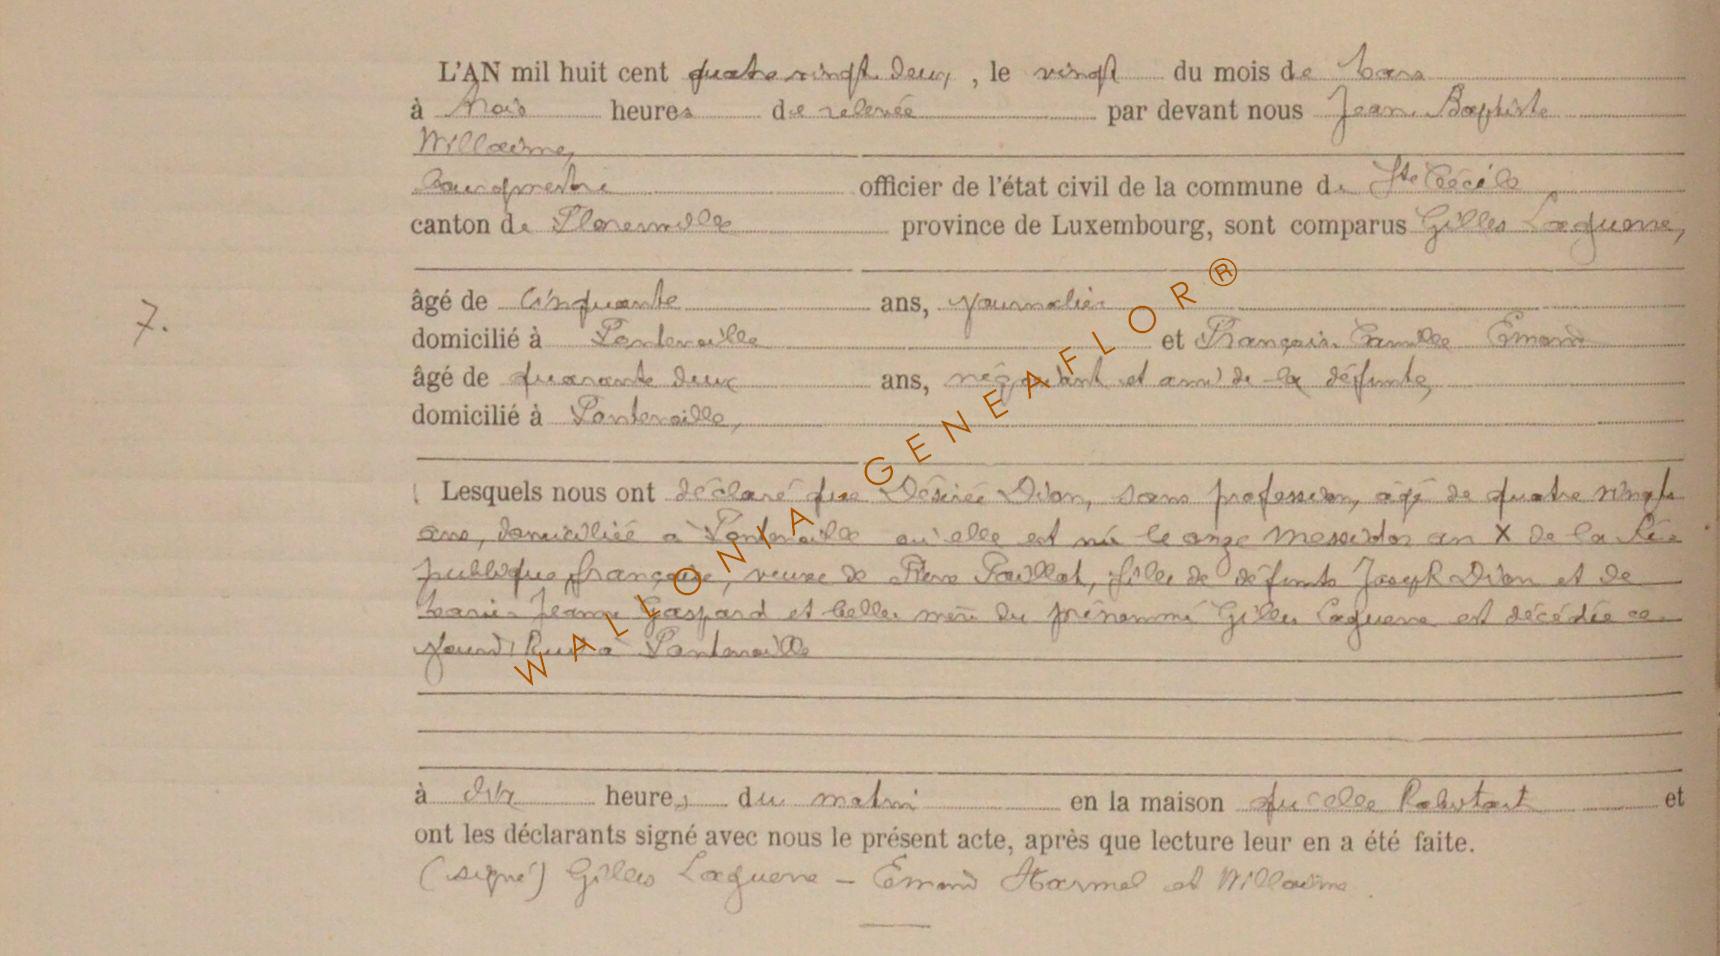 L'AN mil huit cent quatre vingt deux, le vingt du mois de Mars
à trois heures de relevée par devant nous Jean Baptiste
Willaime,
Bourgmestre officier de l'état civil de la commune de Ste Cécile
canton de Florenville province de Luxembourg, sont comparus Gilles Laguerre,
âgé de cinquante ans, journalier
7.
domicilié à Fontenoille et François Camille Emond
âgé de quarante deux ans, négociant et ami de la défunte,
domicilié à Fontenoille,
Lesquels nous ont déclaré que Désirée Dion, sans profession, agé de quatre vingts
ans, domiciliée à Fontenoille où elle est née le onze Messidor an X de la Ré-
publique française, veuve de Pierre Paillot, fille de défunts Joseph Dion et de
Marie Jeanne Gaspard et belle mère du prénommé Gilles Laguerre est décédée ce
jourd'hui à Fontenoille
à dix heures du matin en la maison qu'elle habitait et
ont les déclarants signé avec nous le présent acte, après que lecture leur en a été faite.
(signé) Gilles Laguerre – Emond Harmel et Willaime.
WALLONIA GENEAFLOR®